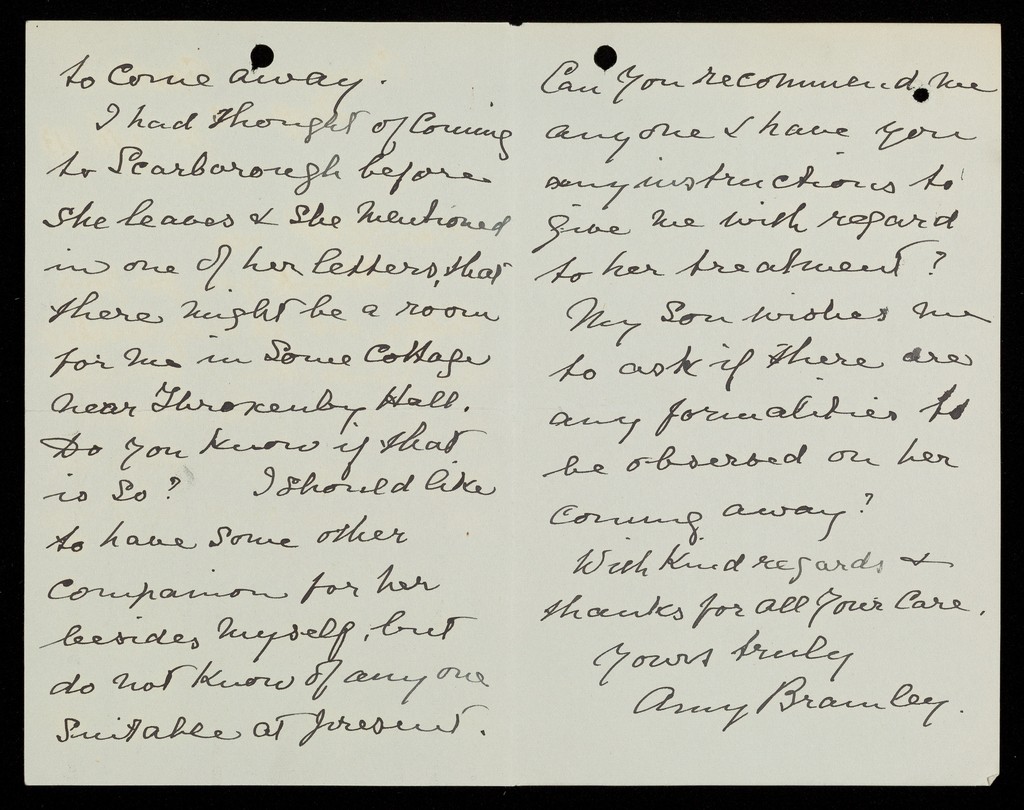 to come away.
I had thought of coming
to Scarborough before
she leaves & she mentioned
in one of her letters, that
there might be a room
for me in some cottage
near Throxenby Hall.
Do you know if that
is so? I should like
to have some other
companion for her
besides myself, but
do not know of any one
suitable at present.
Can you recommend me
any one & have you
any instructions to
give me with regard
to her treatment?
My son wishes me
to ask if there are
any formalities to
be observed on her
coming away?
With kind regards &
thanks for all your care.
Yours truly
Amy Bramley.